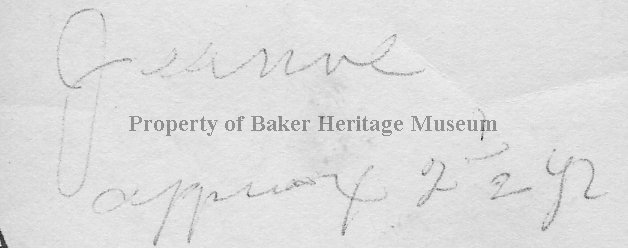 Property of Baker Heritage Museum
approx 2 1/2 yr